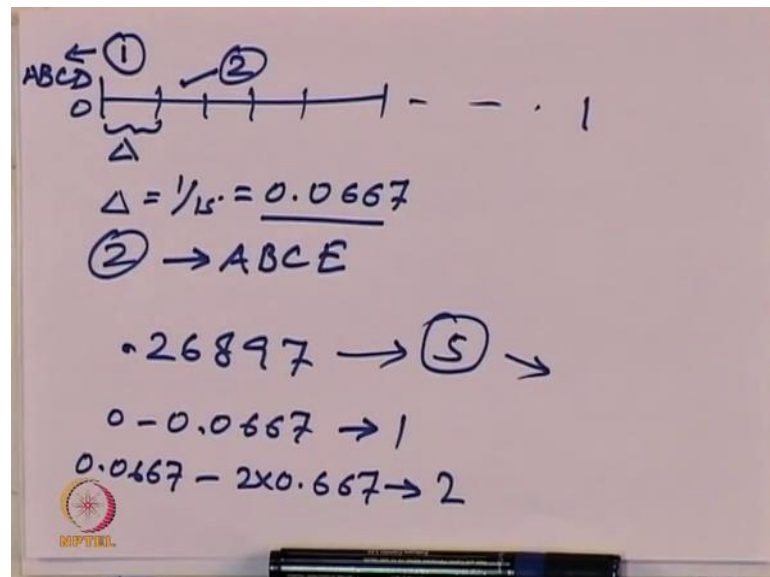 ← ①
ABCD ②
0 - - . 1
Δ
Δ = 1/15. = 0.0667
② → ABCE
.26897 → ⑤ →
0 - 0.0667 → 1
0.0667 - 2x0.667 → 2
NPTEL